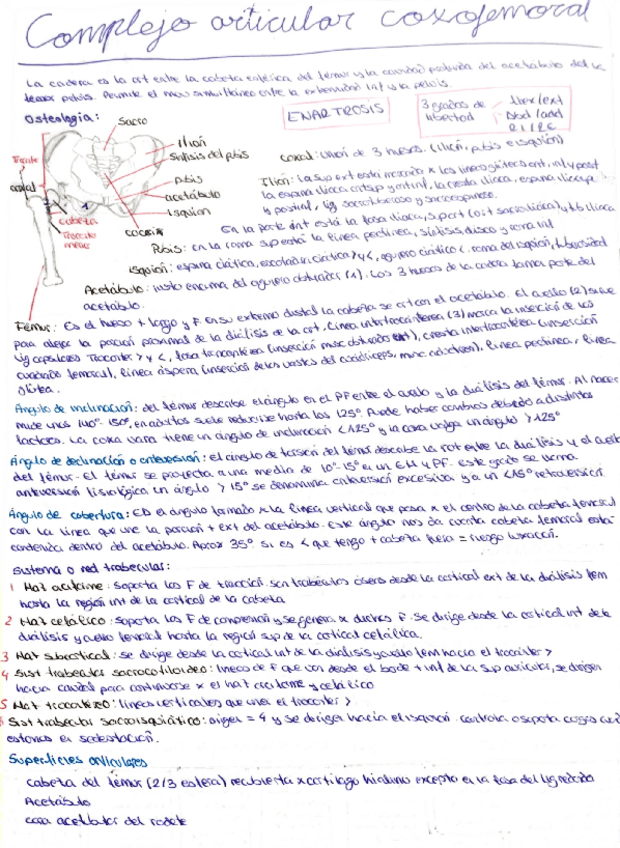 Complejo articular coxofemoral
La cadera es la art entre la cabeza esférica del fémur y la cavidad profunda del acetábulo del
pelvis. Permite el mov simultáneo entre la extremidad inf y la pelvis.
Osteología:
ENARTROSIS
3 grados de libertad
flex/ext
abd/add
RI/RE
Sacro
Ilión
Sínfisis del pubis
pubis
acetábulo
isquion
coccix
coxal
cabeza
Trocánter menor
1
Coxal: Unión de 3 huesos. (ilión, pubis e isquión)
Ilión: la sup ext está marcada x las líneas glúteas ant, inf y post
la espina iliaca antsup y antinf, la cresta iliaca, espina iliaca p
y postinf, lig sacrotuberoso y sacroespinoso.
En la parte int está la fosa iliaca, sup art (art sacroiliaca) y tub iliaca
Pubis: en la rama sup está la línea pectínea, sínfisis, disco y rama inf
Isquión: espina ciática, escotadura ciática > y <, agujero ciático <, rama del isquión, tuberosidad
Acetábulo: justo encima del agujero obturador (1). Los 3 huesos de la cadera forma parte del
acetábulo.
Fémur: Es el hueso + largo y F. En su extremo distal la cabeza se art con el acetábulo. El cuello (2) sirve
para alejar la porción proximal de la diáfisis de la art. Línea intertrocantérea (3) marca la inserción de los
lig capsulares. Trocánter > y <, fosa trocantérea (inserción musc obturador ext), cresta intertrocantérea (inserción
cuadrado femoral), línea áspera (inserción de los vastos del cuádriceps, musc aductores), línea pectínea, línea
glútea.
Ángulo de inclinación: del fémur describe el ángulo en el PF entre el cuello y la diáfisis del fémur. Al nacer
mide unos 140°-150°, en adultos suele reducirse hasta los 125°. Puede haber cambios debido a distintos
factores. La coxa vara tiene un ángulo de inclinación < 125° y la coxa valga un ángulo > 125°
Ángulo de declinación o anteversión: el ángulo de torsión del fémur describe la rot entre la diáfisis y el cuello
del fémur. El fémur se proyecta a una media de 10°-15° en un EH y PF. Este grado se llama
anteversión fisiológica un ángulo > 15° se denomina anteversión excesiva y a un <15° retroversión.
Ángulo de cobertura: Es el ángulo formado x la línea vertical que pasa x el centro de la cabeza femoral
con la línea que une la porción + ext del acetábulo. Este ángulo nos da cuenta cabeza femoral está
contenida dentro del acetábulo. Aprox 35° si es < que tengo + cabeza fuera = riesgo luxación.
Sistema o red trabecular:
1 Haz arciforme: soporta las F de tracción. Son trabéculas óseas desde la cortical ext de la diáfisis fem
hasta la región int de la cortical de la cabeza
2 Haz cefálico: soporta las F de compresión y se genera x duchas F. Se dirige desde la cortical int de la
diáfisis y cuello femoral hasta la región sup de la cortical cefálica.
3 Haz subcortical: se dirige desde la cortical int de la diáfisis y cuello fem hacia el trocánter >
4 Sist trabecular sacrocotiloideo: líneas de F que van desde el borde + inf de la sup auricular, se dirigen
hacia caudal para continuarse x el haz arciforme y cefálico
5 Haz trocantéreo: líneas verticales que unen el trocánter >
Sist trabecular sacroisquiático: origen = 4 y se dirigen hacia el isquión. Controla o soporta cargas cuando
estamos en sedestación.
Superficies articulares
Cabeza del fémur (2/3 esfera) recubierta x cartílago hialino excepto en la fosa del lig redondo
Acetábulo
cara acetabular del rodete